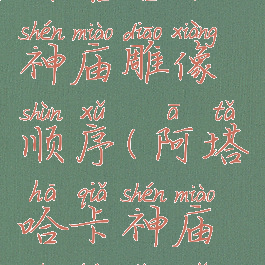 shén miào diāo xiàng
神庙雕像
shùn xǔ ā tǎ
顺序(阿塔
hā qiǎ shén miào
哈卡神庙